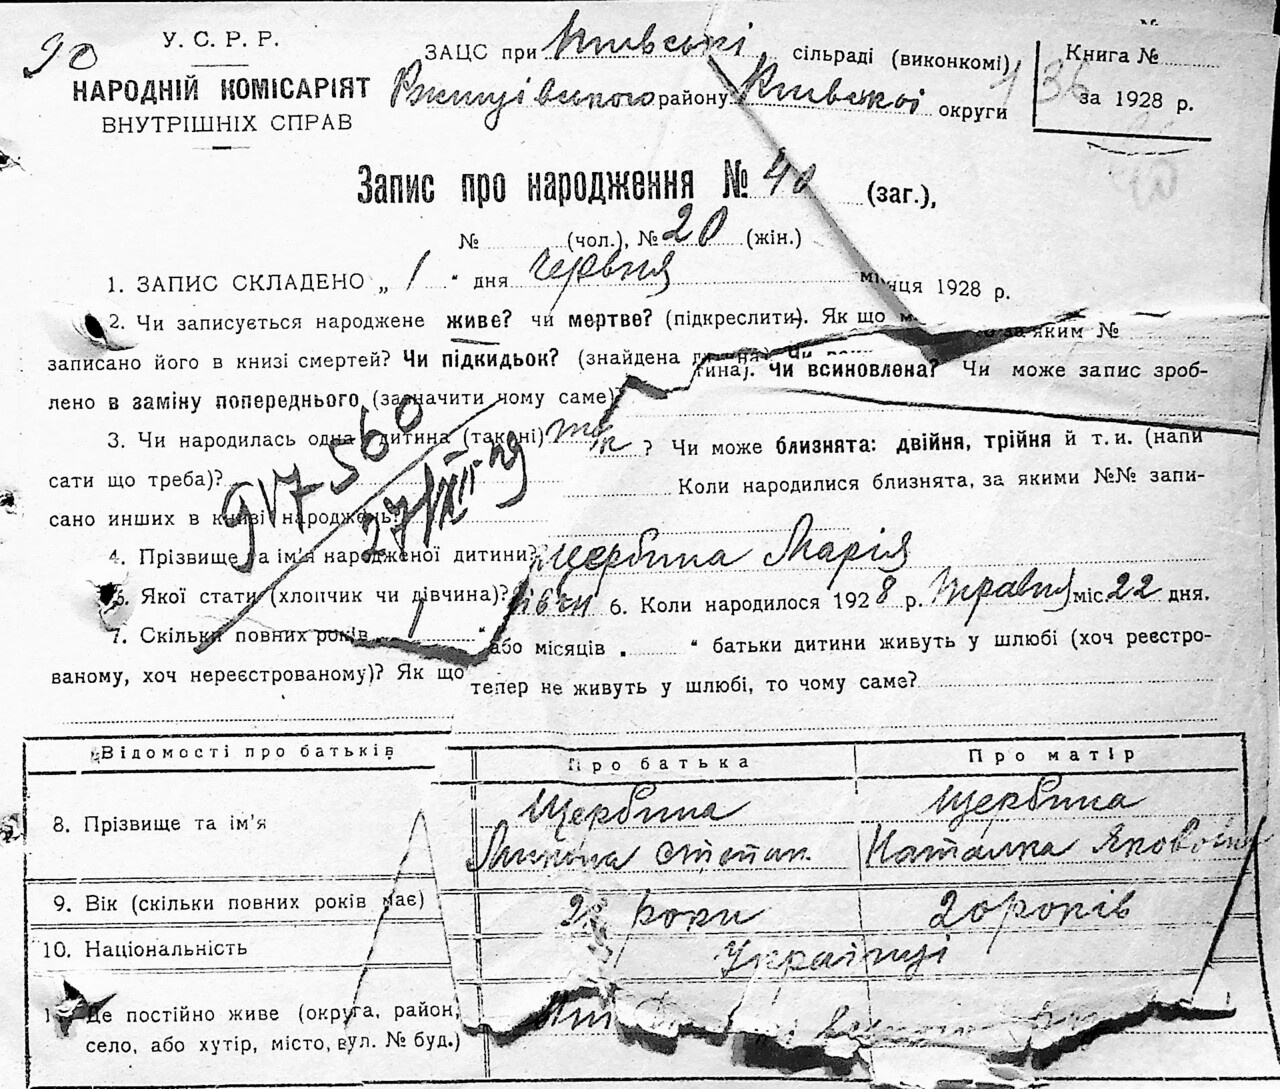 90
У. С. Р. Р.
НАРОДНІЙ КОМІСАРІЯТ
ВНУТРІШНІХ СПРАВ
ЗАЦС при сільраді (виконкомі)
району Київської округи
Книга №
136
за 1928 р.
Запис про народження № 40 (заг.),
№ (чол.), № 20 (жін.)
1. ЗАПИС СКЛАДЕНО „ 1 “ дня червня місяця 1928 р.
2. Чи записується народжене живе? чи мертве? (підкреслити). Як що за яким №
записано його в книзі смертей? Чи підкидьок? (знайдена дитина). Чи всиновлена? Чи може запис зроб-
лено в заміну попереднього (зазначити чому саме)?
3. Чи народилась одна дитина (так, ні) так ? Чи може близнята: двійня, трійня й т. и. (напи
сати що треба)? Коли народилися близнята, за якими №№ запи-
сано инших в книзі народжень?
917-560
27/XII-29
4. Прізвище та ім'я народженої дитини? Щербина Марія
5. Якої стати (хлопчик чи дівчина)? дівчи 6. Коли народилося 1928 р. травня міс. 22 дня.
7. Скільки повних років 1 “ або місяців . “ батьки дитини живуть у шлюбі (хоч реєстро-
ваному, хоч нереєстрованому)? Як що тепер не живуть у шлюбі, то чому саме?
Відомості про батьків Про батька Про матір
8. Прізвище та ім'я Щербина Щербина
Микита Степан. Наталка Яковівна
9. Вік (скільки повних років має) роки 20 років
10. Національність Українці
Де постійно живе (округа, район,
село, або хутір, місто, вул. № буд.)